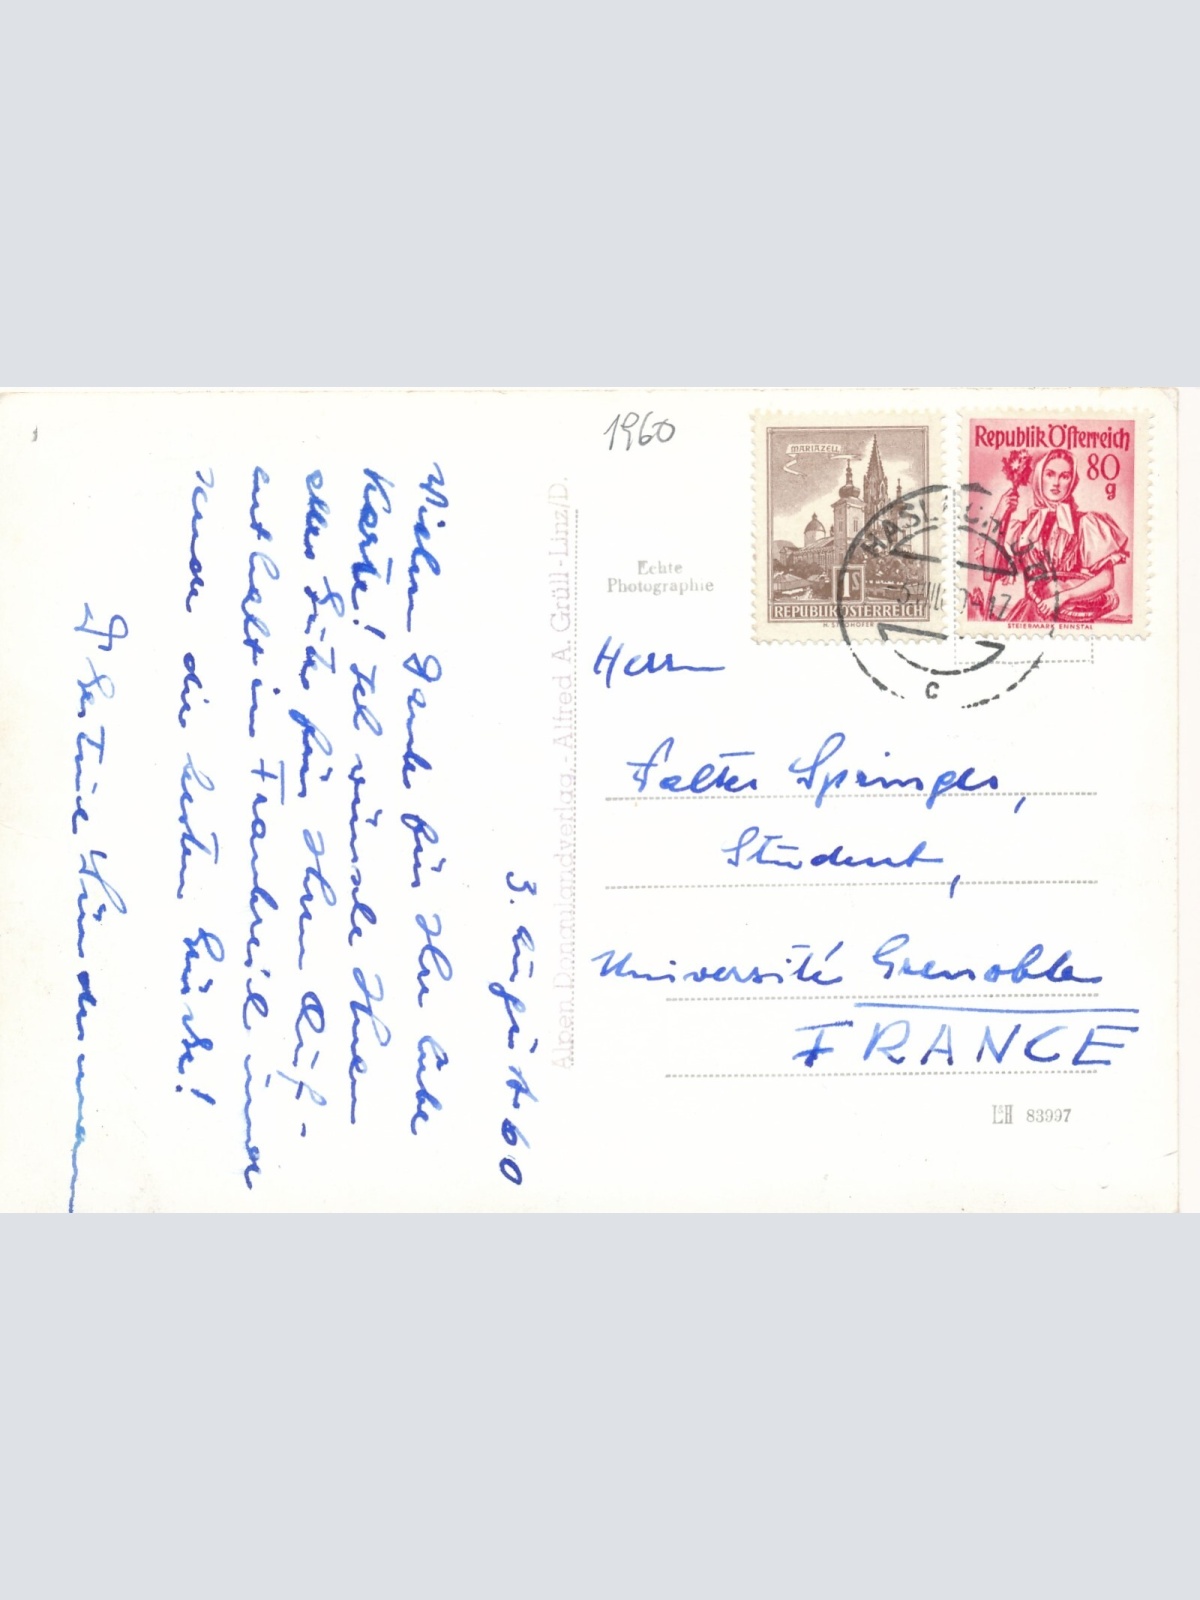 1960
MARIAZELL
1S
REPUBLIK ÖSTERREICH
Republik Österreich
80
g
STEIERMARK ENNSTAL
HASL
C
Echte
Photographie
Alpen-Donaulandverlag - Alfred A. Grüll - Linz/D.
3. August 60
Vielen Dank für Ihre liebe
Karte! Ich wünsche Ihnen
alles Gute für Ihren Auf-
enthalt in Frankreich und
sende die besten Grüße!
Herrn
Springer,
Student,
Université Grenoble
FRANCE
83997